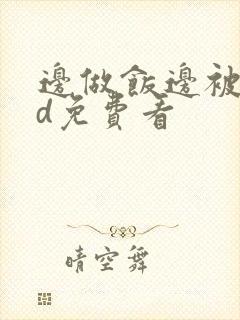 邊做飯邊被
d免費看
晴空舞